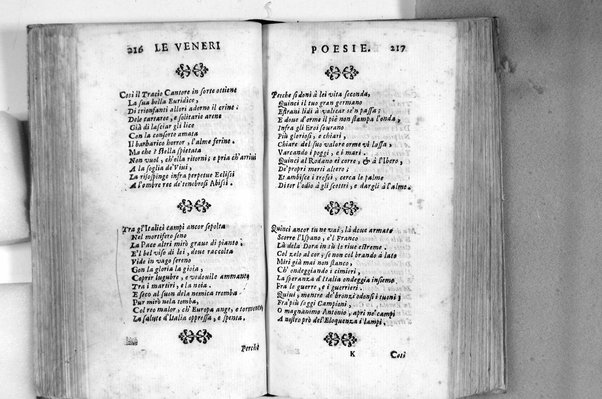 216 LE VENERI
Così il Tracio Cantore in sorte ottiene
La sua bella Euridice,
Di trionfanti allori adorno il crine:
Dele tartaree, e solitarie arene
Già di lasciar gli lice
Con la consorte amata
Il barbarico horror, l'alme ferine.
Ma che? Stella spietata
Non vuol, ch'ella ritorni; e pria ch'arrivi
A la soglia de' Vivi,
La rispinge infra perpetue Eclissi
A l'ombre ree de' tenebrosi Abissi.
Tra gl'Italici campi ancor sepolta
Nel mortifero seno
La Pace altri mirò graue di pianto;
E'l bel viso di lei, doue raccolta
Vide in vago sereno
Con la gloria la gioia,
Coprir lugubre, e vedouile ammanto
Tra i martiri, e la noia.
E seco al suon dela nemica tromba
Pur mirò nela tomba,
Col reo malor, ch'Europa ange, e tormenta
La salute d'Italia oppressa, e spenta.
Perchè
POESIE. 217
Perche si doni à lei vita seconda,
Quinci il tuo gran germano
Estrani lidi à valicar se'n passa;
E doue d'orme il piè non stampa l'onda,
Infra gli Eroi sourano
Più gloriosi, e chiari,
Chiare del suo valore orme vi lassa;
Varcando i poggi, e i mari.
Quinci al Rodano ei corre, & à l'Ibero,
De' propri merti altero;
Et ambisce i trofei, cerca le palme
Di tor l'odio à gli scettri, e dargli à l'alme.
Quinci ancor tu ne vai, là doue armato
Scorre l'Ispano, e'l Franco
Là dela Dora in sù le riue estreme.
Col zelo al cor; e non col brando à lato
Miri già mai non stanco,
Ch'è ondeggiando i cimieri,
La speranza d'Italia ondeggia insieme
Fra le guerre, e i guerrieri.
Quiui, mentre de' bronzi odonsi i tuoni
Fra più saggi Campioni,
O magnanimo Antonio, apri ne' campi
A nostro prò del'Eloquenza i lampi.
K Così